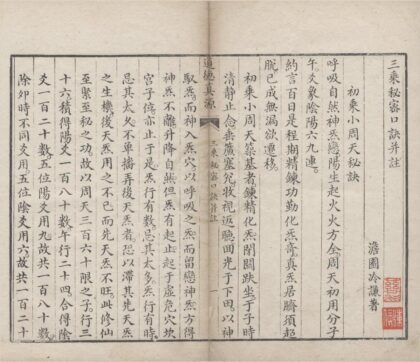 三乘秘密口訣并註
澹圃冷謙著
初乘小周天秘訣
呼吸自然神炁應陽生起火火方全周天初用分子
午爻象陰陽六九連
約言百日是程期精鍊功勤化炁膏真炁居臍須超
脫已成無漏欲遷移
初乘小周天築基者鍊精化炁開關趺坐于子時
清静止念垂簾塞兌牧視返聽回光于下田以神
道德真源
三乘秘密口訣并註
一
馭炁而神入炁穴以呼吸之炁而留戀神炁方得
神炁不離升降自然但炁有起止起于虛危穴坎
宮子位亦止于是炁行有數忌其太多炁行有時
忌其太久不單播弄後天炁者恐以滯其先天炁
之生機後天炁用之不已而先天炁不旺此修仙
至緊至秘之功故以周天三百六十限之子行三
十六積得陽爻一百八十數午行二十四合得陰
爻一百二十數五位陽爻用九故共一百八十數
除夘時不同爻用五位陰爻用六故共一百二十